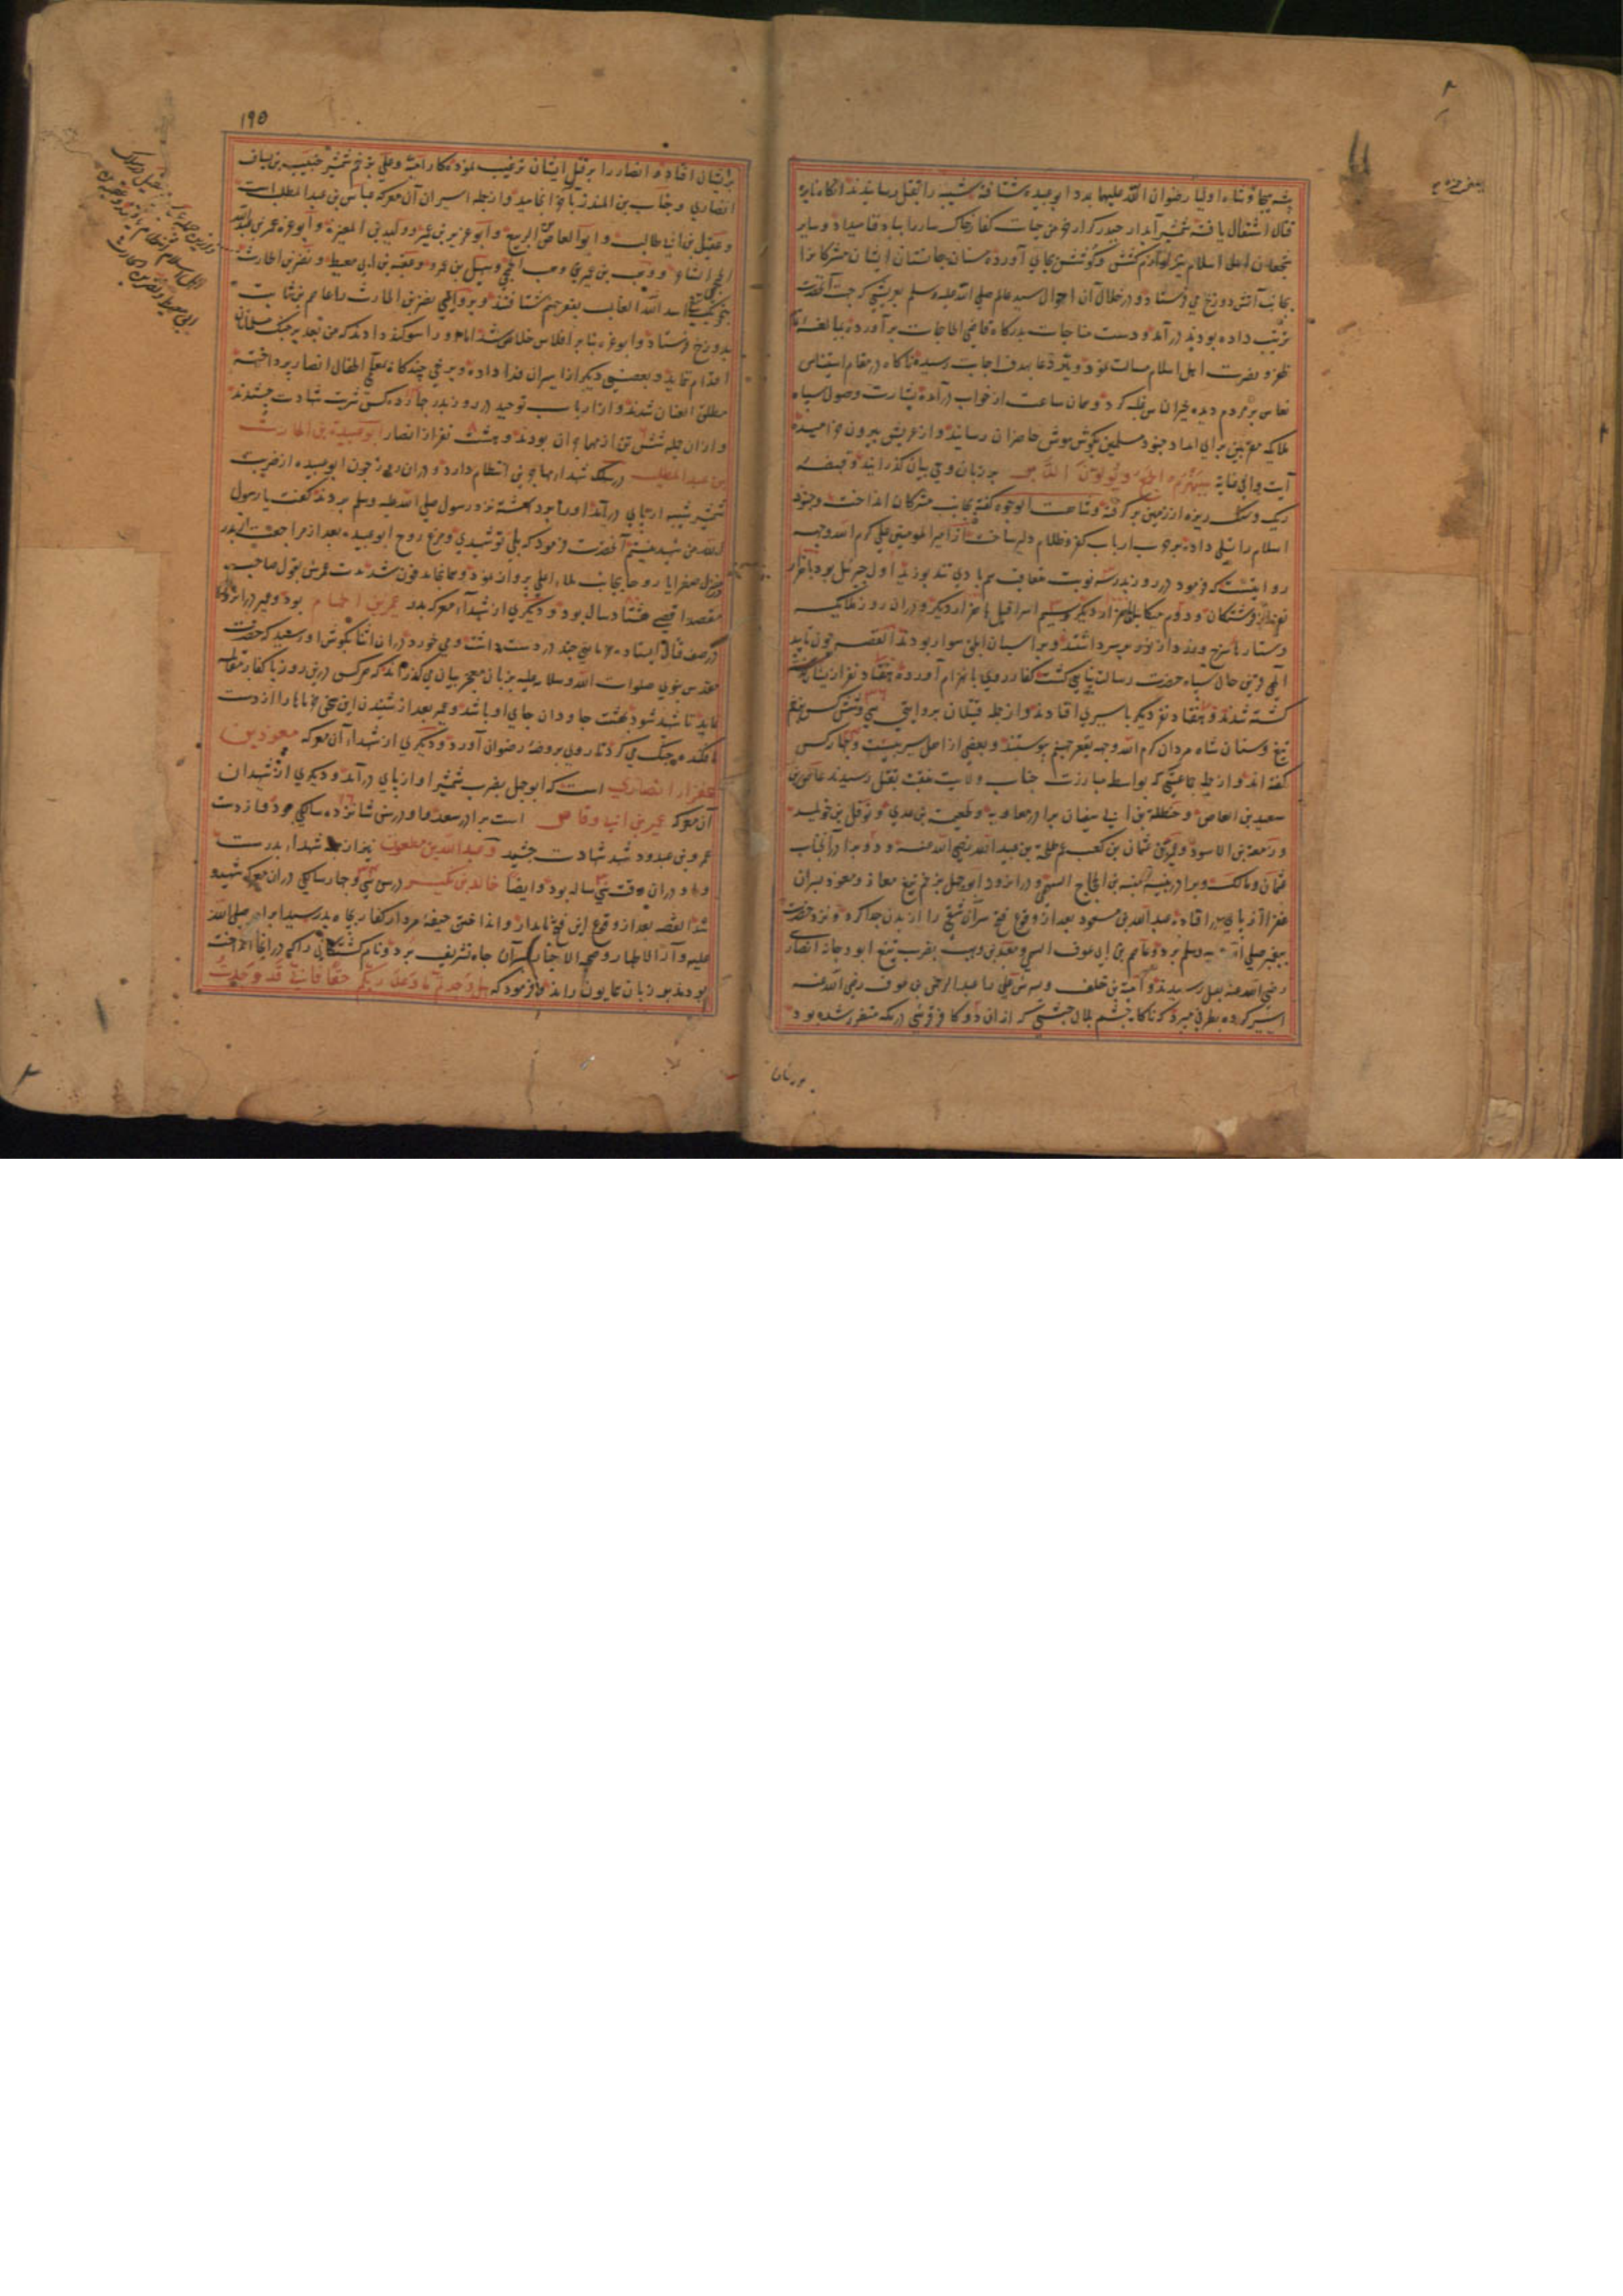 شیبه بجا و شاه اولیا رضوان الله علیهما بمدد ابو عبیده شتافته شیبه را بقتل رسانیدند آنکاه نایره
قتال اشتعال یافته شمشیر آبدار حیدر کرار خرمن حیات کفار خاکسار را بباد فنا میداد و سایر
شجعان اهل اسلام نیز لوازم کشش و کوشش بجای آورده بسنان جانستان ایشان مشرکانرا
بجانب آتش دوزخ می فرستاد و در خلال آن احوال سید عالم صلی الله علیه وسلم بعریشی که جهت آنحضرت
ترتیب داده بودند درآمد و دست مناجات بدرکاه قاضی الحاجات برآورده
ظفر و نصرت اهل اسلام مسالت نمود و تیر دعا بهدف اجابت رسیده ناکاه در مقام استیناس
نعاس بر مردم دیده خیر الناس غلبه کرد و همان ساعت از خواب درآمده بشارت وصول سپاه
ملایکه مقربین برای امداد جنود مسلمین بکوش هوش حاضران رسانید و از عریش بیرون خرامیده
آیت وافی هدایه سیهزم الجمع و یولون الدبر بر زبان وحی بیان کذرانید و قبضهٔ
ریک و سنک ریزه از زمین برکرفته و شاهت الوجوه کفته بجانب مشرکان انداخت و جنود
اسلام را تسلی داده بر حرب ارباب کفر و ظلام دلیر ساخت از امیر المومنین علی کرم الله وجهه
روایتست که فرمود در روز بدر سه نوبت متعاقب هم بادی تند بوزید اول جبرئیل بود با هزار
فرشتکان و دوم میکایل با هزار دیکر و سیم اسرافیل با هزار دیکر و دران روز ملایکه
دستار سرخ و زرد از نور بر سر داشتند و بر اسپان ابلق سوار بودند القصه چون تایید
الهی قرین حال سپاه حضرت رسالت پناهی کشت کفار روی بانهزام آورده هفتاد نفر از ایشان
کشته شدند و هفتاد نفر دیکر باسیری افتادند و از جمله قتیلان بروایتی سی و شش کس بزخم
تیغ و سنان شاه مردان کرم الله وجهه بقعر جهنم پیوستند و بعضی از اهل سیر بیست و چهار کس
کفته اند و از جمله جماعتی که بواسطه مبارزت جناب ولایت منقبت بقتل رسیدند عاص بن
سعید بن العاص و حنظلة بن ابی سفیان برادر معاویه و طعیمة بن عدی و نوفل بن خویلد
و زمعة بن الاسود و عثمان بن کعب عم طلحة بن عبید الله رضی الله عنه و دو برادر آنجناب
عثمان و مالک و برادر منبه بن الحجاج السهمی و در انروز ابوجهل بزخم تیغ معاذ و معوذ پسران
عفرا از پای درافتاد عبد الله بن مسعود بعد از وقوع فتح سر آن شقی را از بدن جدا کرده و نزد حضرت
پیغمبر صلی الله علیه وسلم برد و عاصم بن ابی عوف السهمی و معبد بن وهب بضرب تیغ ابو دجانه انصاری
رضی الله عنه بقتل رسیدند و امیة بن خلف و پسرش علی را عبد الرحمن بن عوف رضی الله عنه
اسیر کرده بطرفی میبرد که ناکاه چشم بلال حبشی که از ان دو کافر قرشی در مکه متضرر شده بود
۱۹۵
بر ایشان افتاده انصار را بر قتل ایشان ترغیب نموده کار امیه و علی بزخم شمشیر خبیب بن یساف
انصاری و حباب بن المنذر بآخر انجامید و از جمله اسیران آن معرکه عباس بن عبد المطلب است
و عقیل بن ابی طالب و ابو العاص بن الربیع و ابو عزیر بن عمیر و ولید بن المغیره و ابو عزه عمر بن عبد الله
الجمحی الشاعر و وهب بن عمیر بن وهب الجمحی و سهیل بن عمرو و عقبة بن ابی معیط و نضر بن الحارث
اسد الله الغالب بقعر جهنم شتافتند و بروایتی نضر بن الحارث را عاصم بن ثابت
بدوزخ فرستاد و ابو عزه بنابر افلاس خلاص شد اما او را سوکند دادند که من بعد بر جنک مسلمانان
اقدام ننماید و بعضی دیکر از اسیران فدا داده و برخی چندکاه بتعلیم اطفال انصار پرداخته
مطلق العنان شدند و از ارباب توحید در روز بدر چهارده کس شربت شهادت چشیدند
و از ان جمله شش تن از مهاجران بودند و هشت نفر از انصار ابو عبیدة بن الحارث
بن عبد المطلب در سلک شهداء مهاجرین انتظام دارد و دران روز چون ابو عبیده از ضرب
شمشیر شیبه از پای درآمد او را برداشته نزد رسول صلی الله علیه وسلم بردند کفت یا رسول
الله من شهید نیستم آنحضرت فرمود که بلی تو شهیدی و مرغ روح ابو عبیده بعد از مراجعت از بدر
در منزل صفرا یا روحا بجانب ملاء اعلی پرواز نمود و همانجا مدفون شد مدت عمرش بقول صاحب
مقصد اقصی هشتاد سال بود و دیکری از شهداء معرکه بدر عمیر بن الحمام بود و عمیر در انروز
در صف قتال ایستاده خرمایی چند در دست داشت و می خورد در ان اثنا بکوش او رسید که حضرت
مقدس نبوی صلوات الله و سلامه علیه بزبان معجز بیان می کذراند که هر کس درین روز با کفار مقاتله
نماید تا شهید شود بهشت جاودان جای او باشد و عمیر بعد از شنیدن این سخن خرماها را از دست
افکنده جنک می کرد تا روی بروضهٔ رضوان آورد و دیکری از شهداء آن معرکه معوذ بن
عفراء انصاری است که ابوجهل بضرب شمشیر او از پای درآمد و دیکری از شهیدان
آن معرکه عمیر بن ابی وقاص است برادر سعد و او در سن شانزده سالکی بود و از دست
عمرو بن عبدود شهد شهادت چشید و عبد الله بن مظعون نیز از جمله شهداء بدر است
و او دران وقت سی ساله بود و ایضا خالد بن بکیر در سن سی و چهار سالکی دران معرکه شهید
شد القصه بعد از وقوع این فتح نامدار و انداختن جیفهٔ مردار کفار بچاه بدر سید ابرار صلی الله
علیه و آله الاطهار و صحبه الاخیار بر سر آن چاه تشریف برد و نام کشتکانی را که در انجا انداخته
بودند بر زبان همایون رانده فرمود که هل وجدتم ما وعد ربکم حقا فانی قد وجدت